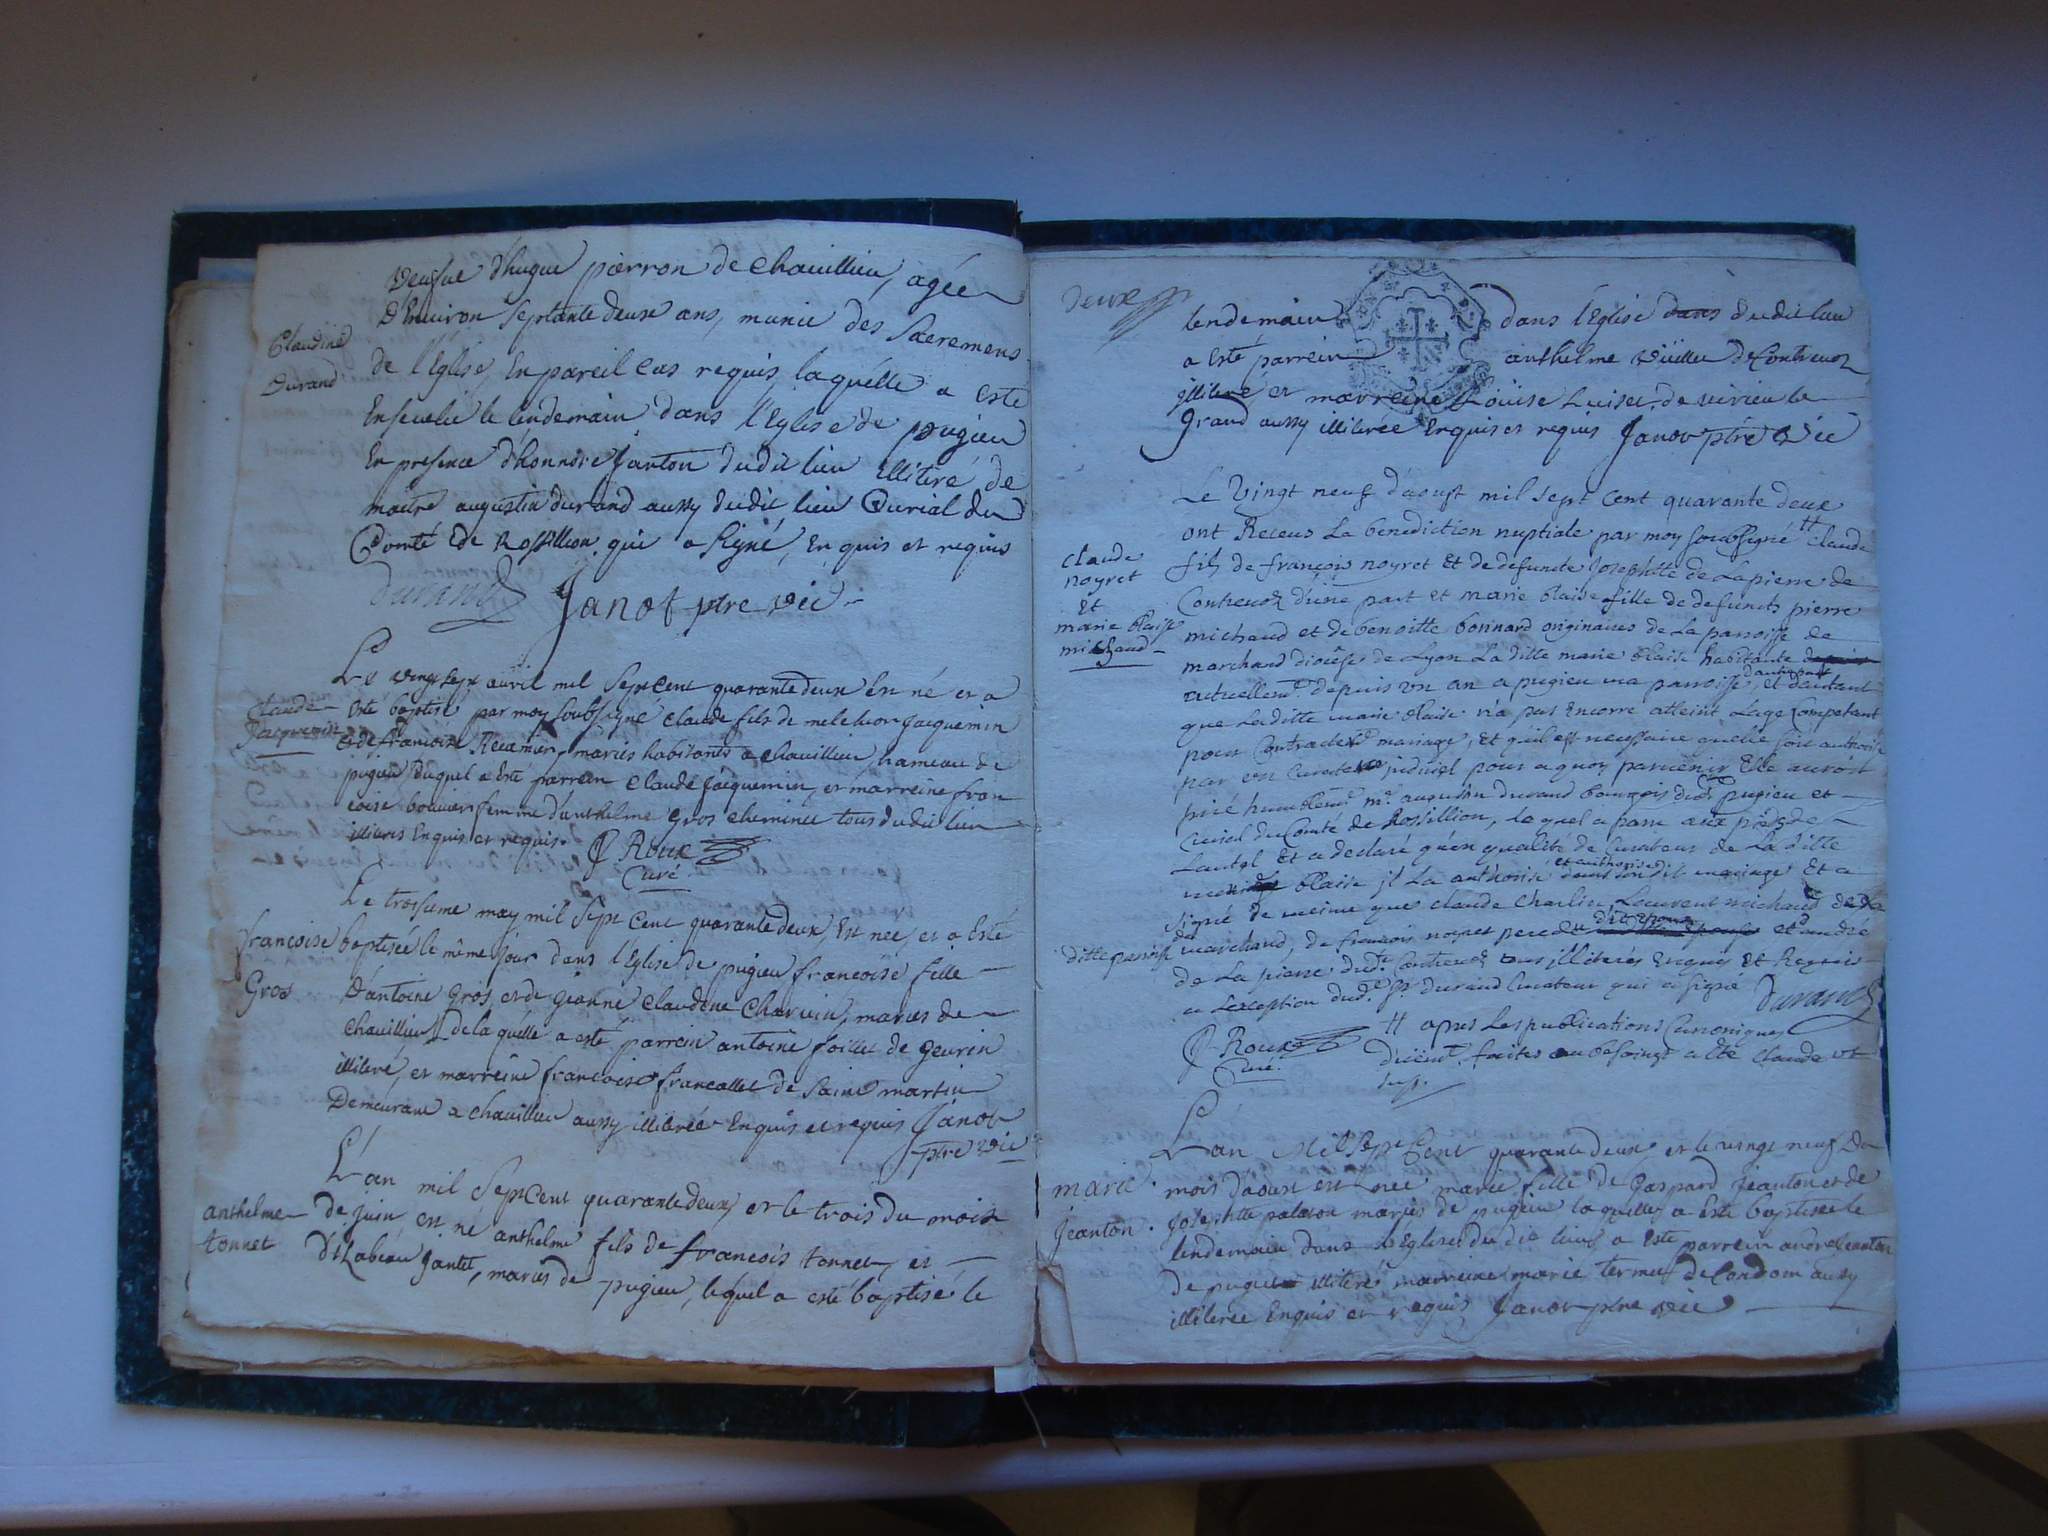 veufve d'hugue pierron de chavillieu, agée
D'Environ septante deux ans, munie des Sacremens
Claudine
Durand
de l'Eglise, En pareil cas requis, laquelle a esté
Ensevelie le lendemain dans l'Eglise de pugieu
En presence d'honnore Janton dudit lieu illiteré de
maitre augustin durand aussy dudit lieu Curial du
Comté de Rossillion qui a signé, Enquis et requis
Durand Janot ptre vic
Le vingt sept avril mil sept cent quarante deux Est né et a
Claude
Jacquemin
esté baptisé par moy soubsigné claude fils de melchior Jacquemin
et de francoise Recamier, mariés habitants a chavillieu, hameau de
pugieu, duquel a esté parrein claude Jacquemin, et marreine fran
coise bouvier femme d'anthelme Gros cheminee tous dudit lieu
illiteres Enquis et requis. Roux
Curé
Le troisieme may mil sept cent quarante deux, Est nee, et a Esté
francoise
Gros
baptisée le même jour dans l'Eglise de pugieu francoise fille
D'antoine Gros, et de Jeanne Claudine Charvin, mariés de
chavillieu, de laquelle a esté parrein antoine foillet de
illiteré, et marreine francoise francallet de Saint martin
Demeurant a chavillieu aussy illiterée Enquis et requis Janot
ptre vic
L'an mil sept Cent quarante deux, et le trois du mois
anthelme
tonnet
de juin, est né anthelme fils de francois tonnet, et
Janton, mariés de pugieu, lequel a esté baptisé le
Deux
lendemain dans l'Eglise dans dudit lieu
a Esté parrein anthelme de Contrevoz
illiteré, et marreine Louise Luiset de virieu le
Grand aussy illiterée Enquis et requis Janot ptre vic
Le vingt neuf d'aoust mil sept cent quarante deux
ont Receus La benediction nuptiale par moy soubsigné # claude
claude
noyret
Et
marie blaise
michaud
fils de francois noyret Et de defuncte Josephtte de Lapierre de
Contrevoz d'une part et marie blaise fille de defuncts pierre
michaud et de benoitte bonnard originaires de La parroisse de
marchand diocèse de Lyon La ditte marie blaise habitante
actuellemt. depuis un an a pugieu ma parroisse, et d'autant
d'autre part
que Laditte marie blaise n'a pas Encorre atteint Lage Competant
pour Contracter mariage, Et qu'il est necessaire quelle soit authorisée
par un Curateur judiciel pour a quoy parvenir Elle auroit
prié humblemt. mr. augustin durand bourgeois dud. pugieu et
Curial du Comté de Rossillion, lequel a paru aux pieds de
Lautel Et a declaré qu'en qualité de Curateur de La ditte
marie blaise il La authorisé et authorise dans son dit mariage Et a
signé de meime que claude Charlin Laurent michaud de La
ditte parroisse de marchand, de francois noyret pere du dit Epoux et andré
de La pierre dudt. Contrevoz tous illiterés Enquis Et Requis
a Lexception dud. Sr. durand Curateur qui a signé Durand
Roux
Curé.
# apres Les publications Canoniques
faites a dte claude ut
sup.
L'an Mil Sept Cent quarante deux, et le vingt neuf Du
marie
jeanton
mois d'aoust est née marie fille de Gaspard jeanton et de
Josephtte mariés de pugieu laquelle a esté baptisée le
lendemain dans l'Eglise du dit lieu, a esté parrein andré jeanton
de pugieu illiteré marreine marie de Condom aussy
illiterée Enquis et requis Janot ptre vic